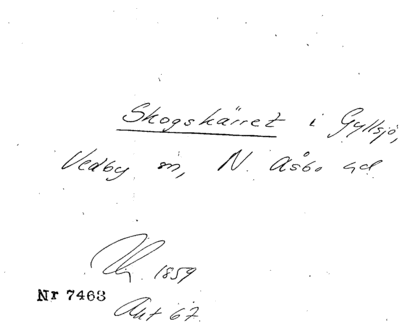 Skogskärret i Gyllsjö,
Vedby sn, N. Åsbo hd
1859
Nr 7463
Akt 67